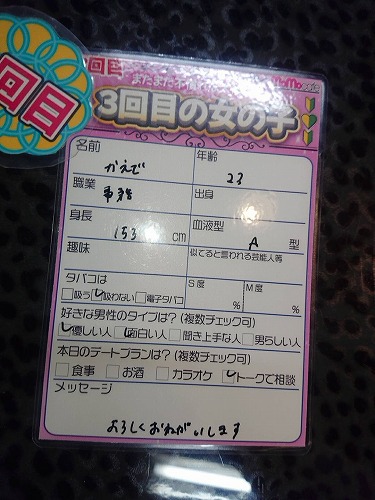 回目
回目
3回目の女の子
名前
かえで
年齢
23
職業
出身
身長
153 cm
血液型
A 型
趣味
似てると言われる芸能人等
タバコは
吸う 吸わない 電子タバコ
S度
%
M度
%
好きな男性のタイプは?(複数チェック可)
優しい人 面白い人 聞き上手な人 男らしい人
本日のデートプランは?(複数チェック可)
食事 お酒 カラオケ トークで相談
メッセージ
よろしくおねがいします